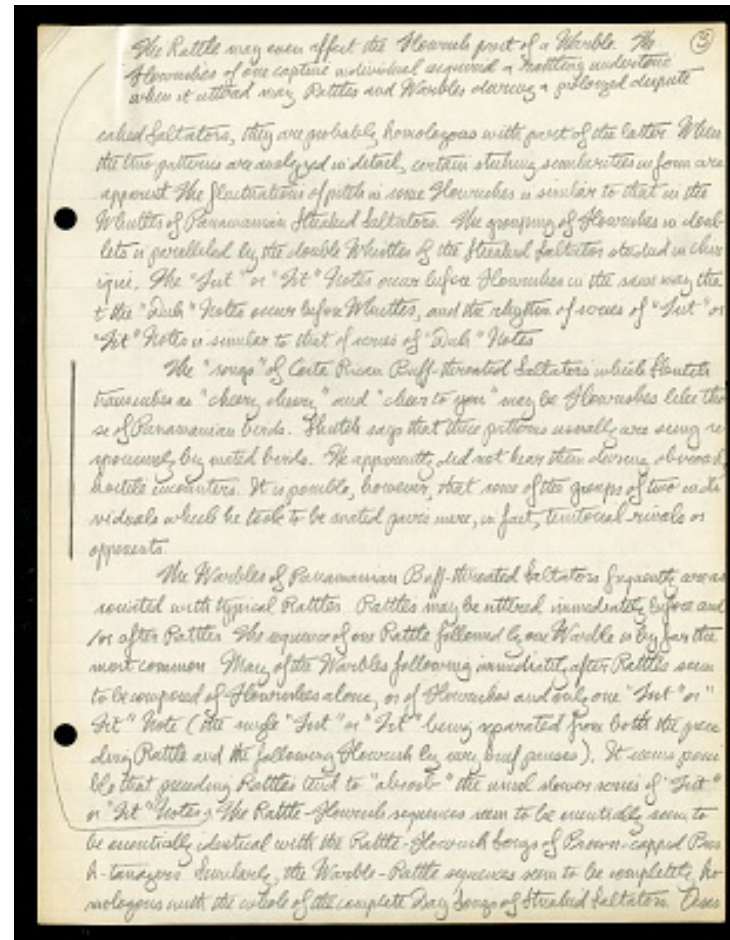 The Rattle may even affect the Flourish part of a Warble. The
3
Flourishes of one captive individual acquired a rattling undertone
when it uttered many Rattles and Warbles during a prolonged dispute
eaked Saltators, they are probably homologous with part of the latter. When
the two patterns are analyzed in detail, certain striking similarities in form are
apparent. The fluctuations of pitch in some Flourishes is similar to that in the
Whistles of Panamanian Streaked Saltators. The grouping of Flourishes in doub-
lets is paralleled by the double Whistles of the Streaked Saltator studied in Chir-
iqui. The "Tut" or "Tit" Notes occur before Flourishes in the same way tha
t the "Duh" Notes occur before Whistles, and the rhythm of series of "Tut" or
"Tit" Notes is similar to that of series of "Duh" Notes
The "songs" of Costa Rican Buff-throated Saltators which Skutch
transcribes as "cheery, cheery" and "cheer to you" may be Flourishes like tho
se of Panamanian birds. Skutch says that these patterns usually are sung re
sponsively by mated birds. He apparently did not hear them during obvious
hostile encounters. It is possible, however, that some of the groups of two indi
viduals which he took to be mated pairs were, in fact, territorial rivals or
opponents.
The Warbles of Panamanian Buff-throated Saltators frequently are as
sociated with typical Rattles. Rattles may be uttered immediately before and
/or after Rattles. The sequence of one Rattle followed by one Warble is by far the
most common. Many of the Warbles following immediately after Rattles seem
to be composed of Flourishes alone, or of Flourishes and only one "Tut" or "
Tit" Note (the single "Tut" or "Tit" being separated from both the prece
ding Rattle and the following Flourish by very brief pauses). It seems possi
ble that preceding Rattles tend to "absorb" the usual slower series of "Tut"
or "Tit" Notes. The Rattle-Flourish sequences seem to be essentially seem to
be essentially identical with the Rattle-Flourish Songs of Brown-capped Bus
h-tanagers. Similarly, the Warble-Rattle sequences seem to be completely ho
mologous with the whole of the complete Day Songs of Streaked Saltators.